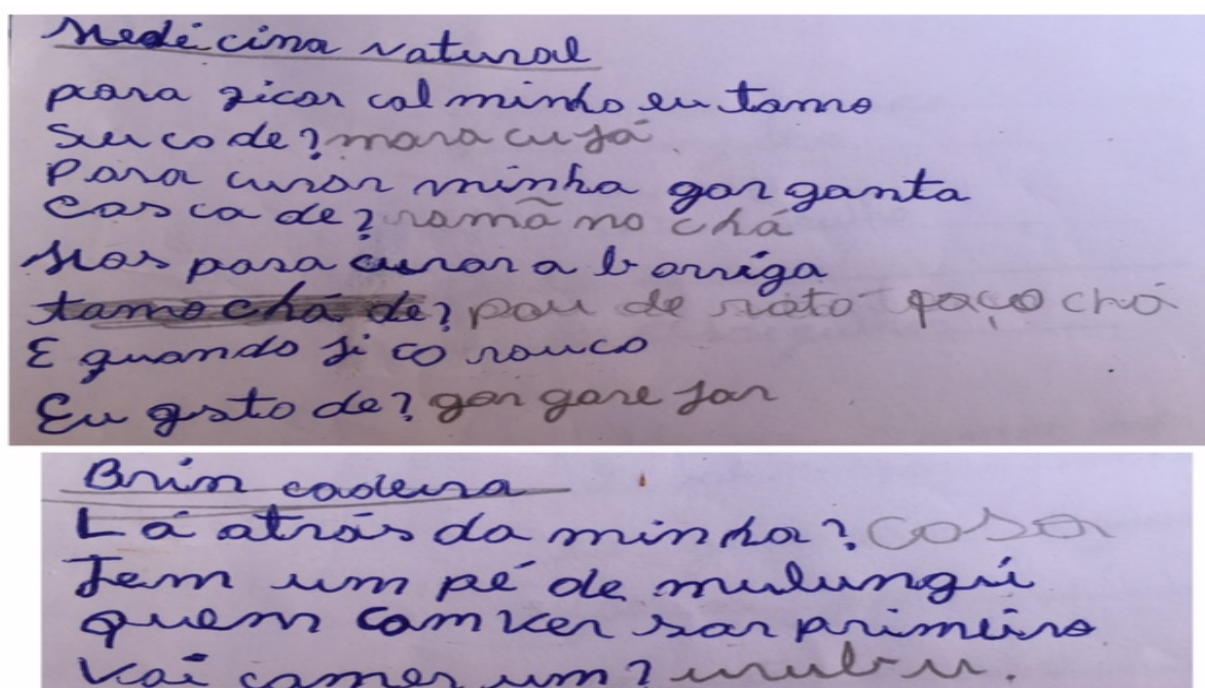 Medicina natural
para ficar calminho eu tamo
suco de? maracujá
Para curar minha gorganta
casca de? romã no chá
Mas para curar a barriga
tamo chá de? pau de rato faço chá
E quando fico rouco
Eu gosto de? gorgarejar
Brincadeira
Lá atrás da minha? casa
Tem um pé de mulungú
quem comversar primeiro
Vai comer um? urubu.